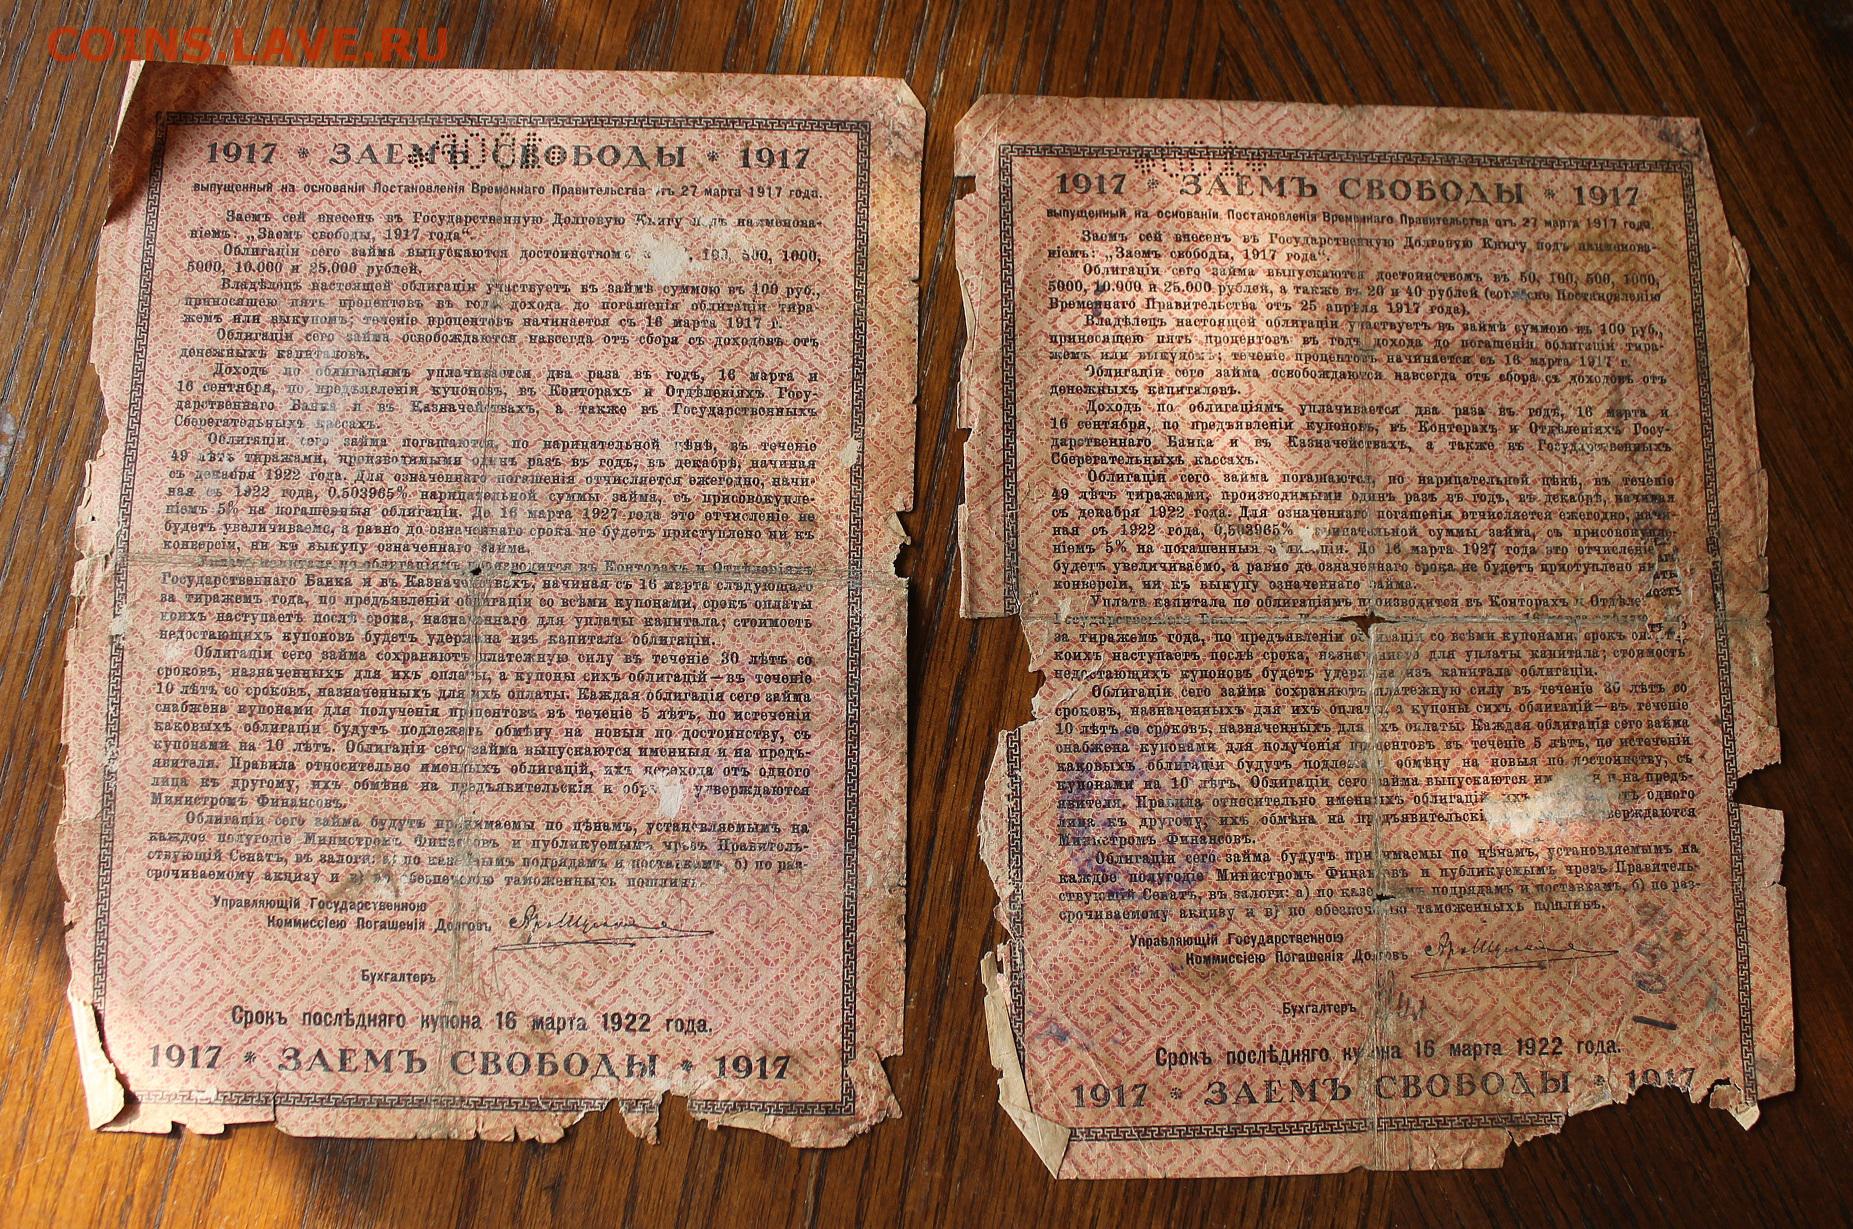 COINS.LAVE.RU
1917 * ЗАЕМЪ СВОБОДЫ * 1917
выпущенный на основаніи Постановленія Временнаго Правительства отъ 27 марта 1917 года.
Заемъ сей внесенъ въ Государственную Долговую Книгу подъ наименова-
ніемъ: „Заемъ свободы, 1917 года“.
Облигаціи сего займа выпускаются достоинствомъ 100, 500, 1000,
5000, 10.000 и 25.000 рублей.
Владѣлецъ настоящей облигаціи участвуетъ въ займѣ суммою въ 100 руб.,
приносящею пять процентовъ въ годъ дохода до погашенія облигаціи тира-
жемъ или выкупомъ; теченіе процентовъ начинается съ 16 марта 1917 г.
Облигаціи сего займа освобождаются навсегда отъ сбора съ доходовъ отъ
денежныхъ капиталовъ.
Доходъ по облигаціямъ уплачивается два раза въ годъ, 16 марта и
16 сентября, по предъявленіи купоновъ, въ Конторахъ и Отдѣленіяхъ Госу-
дарственнаго Банка и въ Казначействахъ, а также въ Государственныхъ
Сберегательныхъ кассахъ.
Облигаціи сего займа погашаются, по нарицательной цѣнѣ, въ теченіе
49 лѣтъ тиражами, производимыми одинъ разъ въ годъ, въ декабрѣ, начиная
съ декабря 1922 года. Для означеннаго погашенія отчисляется ежегодно, начи-
ная съ 1922 года, 0,503965% нарицательной суммы займа, съ присовокупле-
ніемъ 5% на погашенныя облигаціи. До 16 марта 1927 года это отчисленіе не
будетъ увеличиваемо, а равно до означеннаго срока не будетъ приступлено ни къ
конверсіи, ни къ выкупу означеннаго займа.
Уплата капитала по облигаціямъ производится въ Конторахъ и Отдѣленіяхъ
Государственнаго Банка и въ Казначействахъ, начиная съ 16 марта слѣдующаго
за тиражемъ года, по предъявленіи облигаціи со всѣми купонами, срокъ оплаты
коихъ наступаетъ послѣ срока, назначеннаго для уплаты капитала; стоимость
недостающихъ купоновъ будетъ удержана изъ капитала облигаціи.
Облигаціи сего займа сохраняютъ платежную силу въ теченіе 30 лѣтъ со
сроковъ, назначенныхъ для ихъ оплаты, а купоны сихъ облигацій—въ теченіе
10 лѣтъ со сроковъ, назначенныхъ для ихъ оплаты. Каждая облигація сего займа
снабжена купонами для полученія процентовъ въ теченіе 5 лѣтъ, по истеченіи
каковыхъ облигаціи будутъ подлежать обмѣну на новыя по достоинству, съ
купонами на 10 лѣтъ. Облигаціи сего займа выпускаются именныя и на предъ-
явителя. Правила относительно именныхъ облигацій, ихъ перехода отъ одного
лица къ другому, ихъ обмѣна на предъявительскія и обр утверждаются
Министромъ Финансовъ.
Облигаціи сего займа будутъ принимаемы по цѣнамъ, установляемымъ на
каждое полугодіе Министромъ Финансовъ и публикуемымъ чрезъ Правитель-
ствующій Сенатъ, въ залоги: а) по казеннымъ подрядамъ и поставкамъ, б) по раз-
срочиваемому акцизу и в) по обезпеченію таможенныхъ пошлинъ.
Управляющій Государственною
Коммиссіею Погашенія Долговъ
Бухгалтеръ
Срокъ послѣдняго купона 16 марта 1922 года.
1917 * ЗАЕМЪ СВОБОДЫ * 1917
1917 * ЗАЕМЪ СВОБОДЫ * 1917
выпущенный на основаніи Постановленія Временнаго Правительства отъ 27 марта 1917 года.
Заемъ сей внесенъ въ Государственную Долговую Книгу подъ наименова-
ніемъ: „Заемъ свободы, 1917 года“.
Облигаціи сего займа выпускаются достоинствомъ въ 50, 100, 500, 1000,
5000, 10.000 и 25.000 рублей, а также въ 20 и 40 рублей (согласно Постановленію
Временнаго Правительства отъ 25 апрѣля 1917 года).
Владѣлецъ настоящей облигаціи участвуетъ въ займѣ суммою въ 100 руб.,
приносящею пять процентовъ въ годъ дохода до погашенія облигаціи тира-
жемъ или выкупомъ; теченіе процентовъ начинается съ 16 марта 1917 г.
Облигаціи сего займа освобождаются навсегда отъ сбора съ доходовъ отъ
денежныхъ капиталовъ.
Доходъ по облигаціямъ уплачивается два раза въ годъ, 16 марта и
16 сентября, по предъявленіи купоновъ, въ Конторахъ и Отдѣленіяхъ Госу-
дарственнаго Банка и въ Казначействахъ, а также въ Государственныхъ
Сберегательныхъ кассахъ.
Облигаціи сего займа погашаются, по нарицательной цѣнѣ, въ теченіе
49 лѣтъ тиражами, производимыми одинъ разъ въ годъ, въ декабрѣ, начиная
съ декабря 1922 года. Для означеннаго погашенія отчисляется ежегодно, начи-
ная съ 1922 года, 0,503965% нарицательной суммы займа, съ присовокупле-
ніемъ 5% на погашенныя облигаціи. До 16 марта 1927 года это отчисленіе
будетъ увеличиваемо, а равно до означеннаго срока не будетъ приступлено ни
конверсіи, ни къ выкупу означеннаго займа.
Уплата капитала по облигаціямъ производится въ Конторахъ и Отдѣле
Государственнаго
за тиражемъ года, по предъявленіи облигаціи со всѣми купонами, срокъ
коихъ наступаетъ послѣ срока, назначеннаго для уплаты капитала; стоимость
недостающихъ купоновъ будетъ удержана изъ капитала облигаціи.
Облигаціи сего займа сохраняютъ платежную силу въ теченіе 30 лѣтъ со
сроковъ, назначенныхъ для ихъ оплаты, а купоны сихъ облигацій—въ теченіе
10 лѣтъ со сроковъ, назначенныхъ для ихъ оплаты. Каждая облигація сего займа
снабжена купонами для полученія процентовъ въ теченіе 5 лѣтъ, по истеченіи
каковыхъ облигаціи будутъ подлежать обмѣну на новыя по достоинству, съ
купонами на 10 лѣтъ. Облигаціи сего займа выпускаются им и на предъ-
явителя. Правила относительно именныхъ облигацій, ихъ отъ одного
лица къ другому, ихъ обмѣна на предъявительскі утверждаются
Министромъ Финансовъ.
Облигаціи сего займа будутъ принимаемы по цѣнамъ, установляемымъ на
каждое полугодіе Министромъ Финансовъ и публикуемымъ чрезъ Правитель-
ствующій Сенатъ, въ залоги: а) по казеннымъ подрядамъ и поставкамъ, б) по раз-
срочиваемому акцизу и в) по обезпеченію таможенныхъ пошлинъ.
Управляющій Государственною
Коммиссіею Погашенія Долговъ
Бухгалтеръ
Срокъ послѣдняго купона 16 марта 1922 года.
1917 * ЗАЕМЪ СВОБОДЫ * 1917